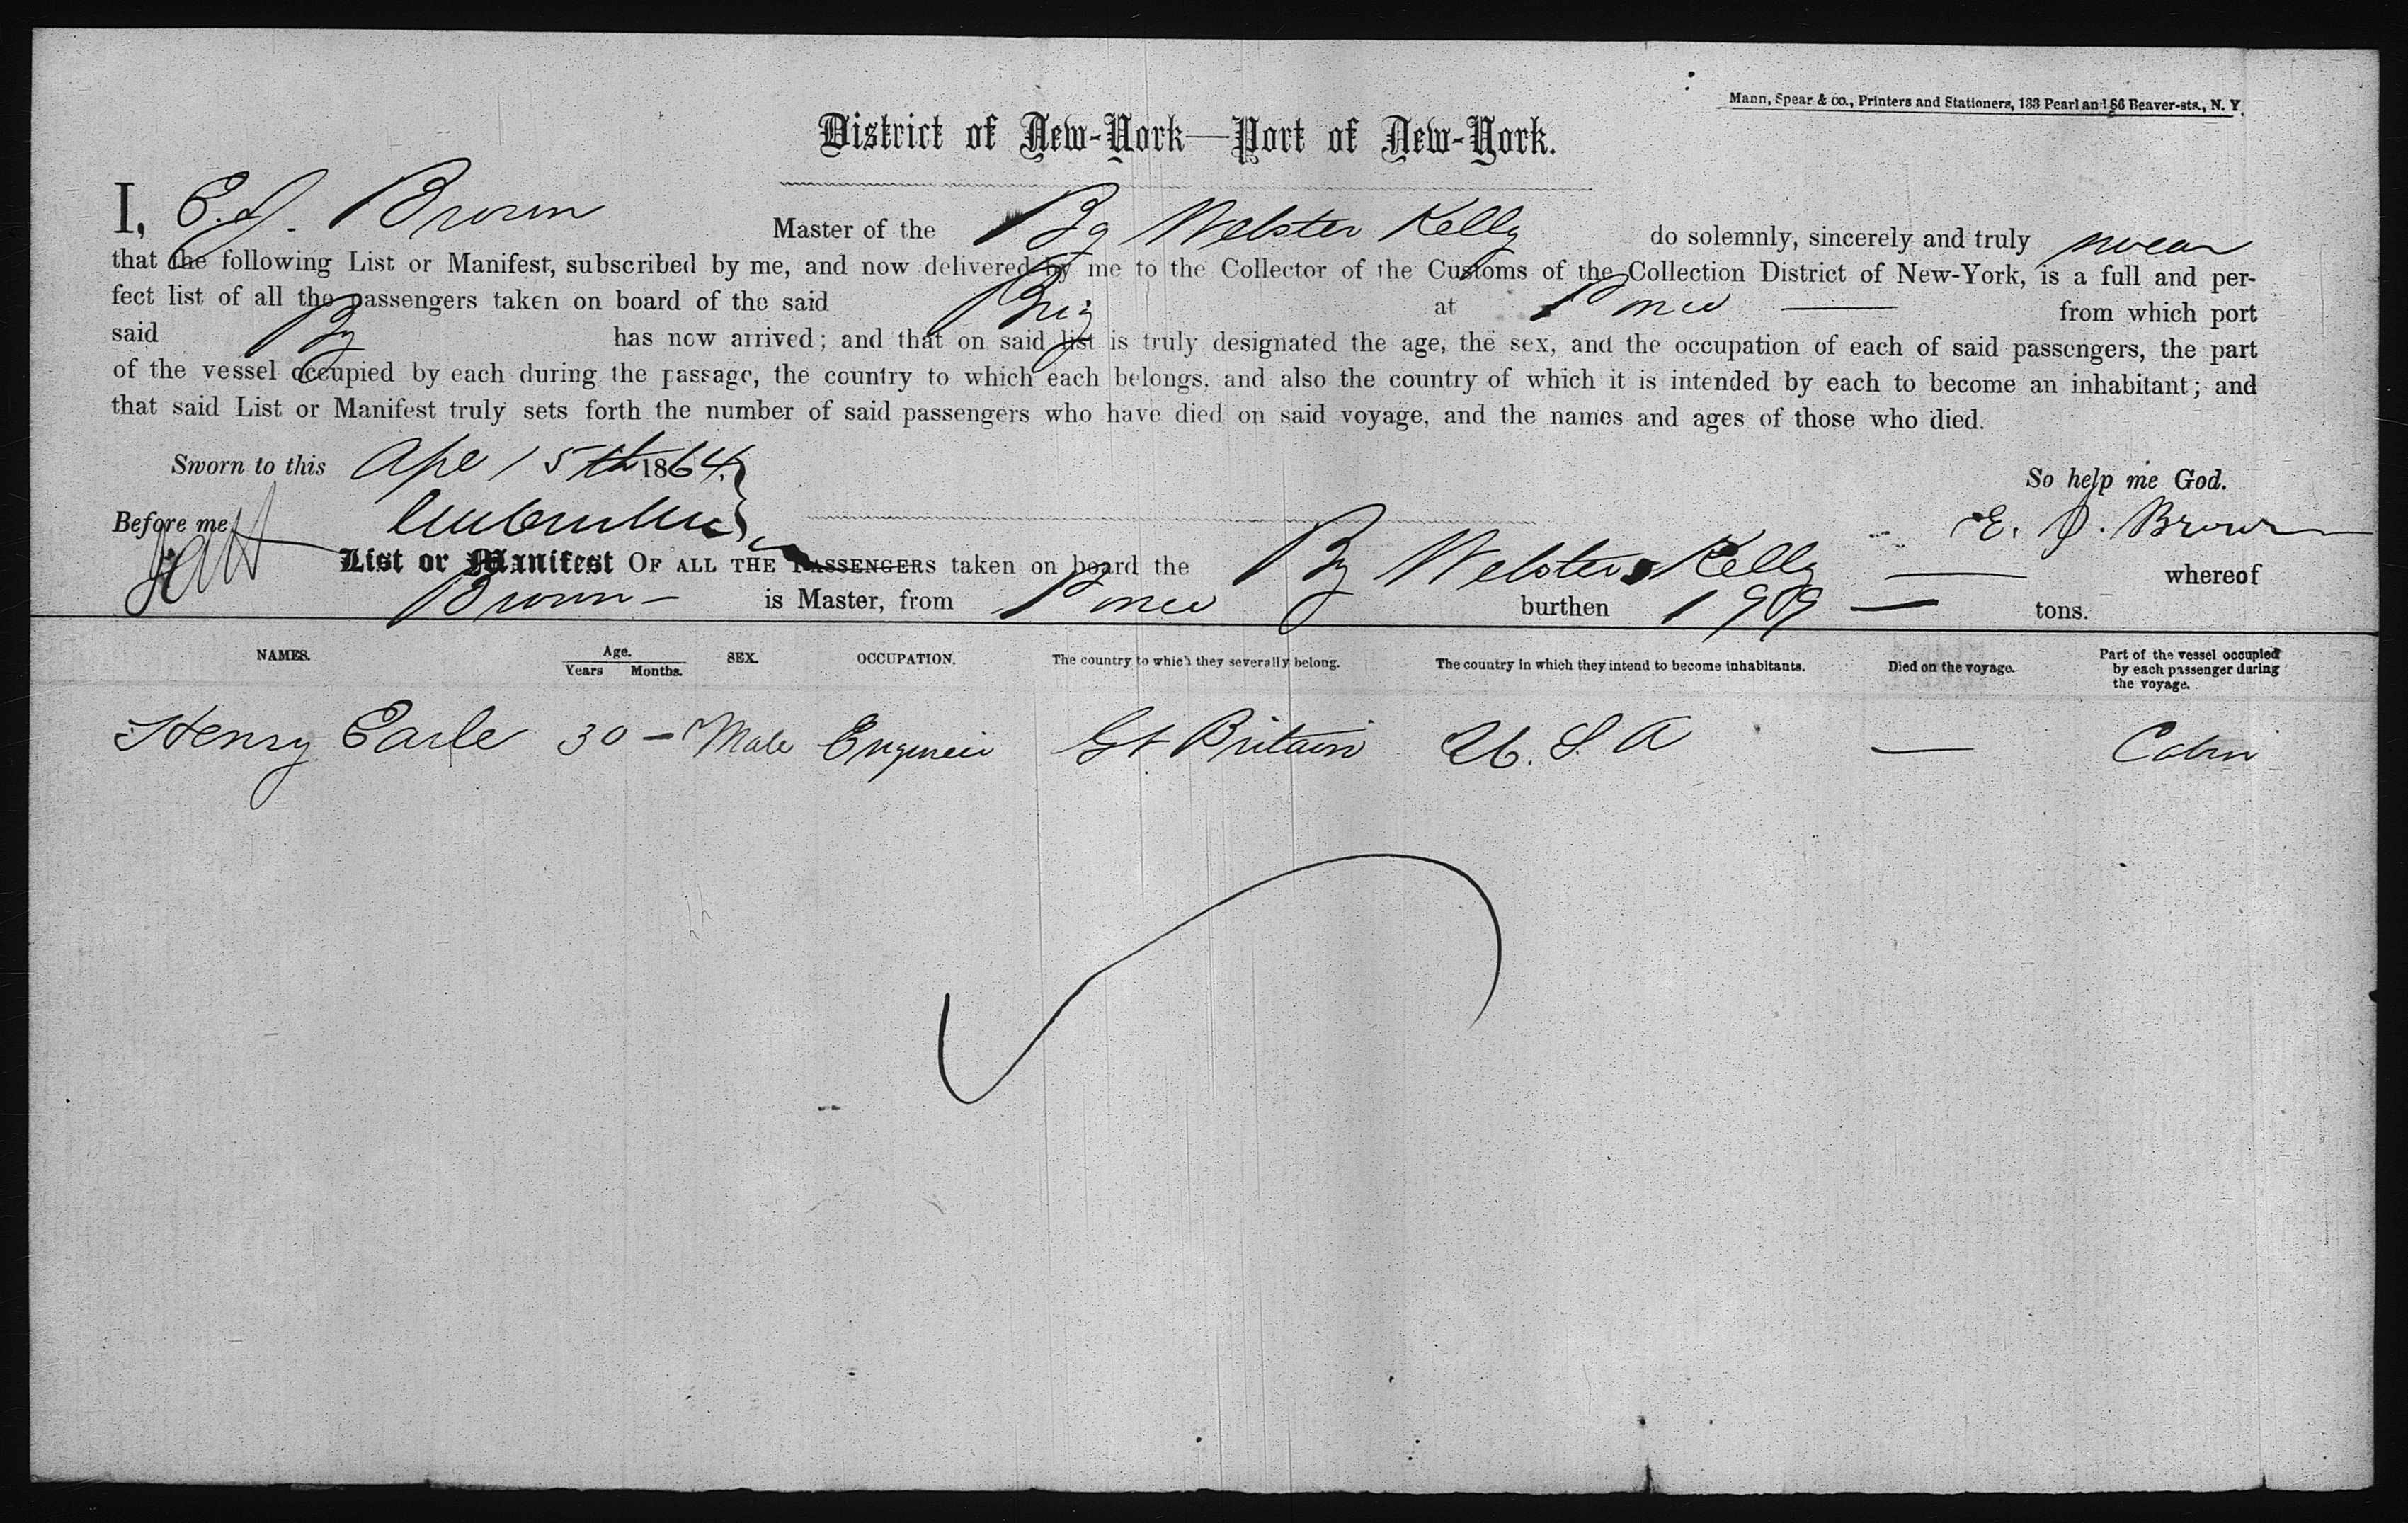 Mann, Spear & co., Printers and Stationers, 133 Pearl and 86 Beaver-sts., N. Y.
District of New-York—Port of New-York.
I, E. J. Brown Master of the Bg Webster Kelly do solemnly, sincerely and truly swear
that the following List or Manifest, subscribed by me, and now delivered by me to the Collector of the Customs of the Collection District of New-York, is a full and per-
fect list of all the passengers taken on board of the said Brig at Ponce — from which port
said Bg has now arrived; and that on said list is truly designated the age, the sex, and the occupation of each of said passengers, the part
of the vessel occupied by each during the passage, the country to which each belongs, and also the country of which it is intended by each to become an inhabitant; and
that said List or Manifest truly sets forth the number of said passengers who have died on said voyage, and the names and ages of those who died.
Sworn to this Apl 15th 1864. So help me God.
Before me, E. J. Brown
List or Manifest OF ALL THE PASSENGERS taken on board the Bg Webster Kelly — whereof
Brown — is Master, from Ponce burthen tons.
NAMES. Age. Years Months. SEX. OCCUPATION. The country to which they severally belong. The country in which they intend to become inhabitants. Died on the voyage. Part of the vessel occupied by each passenger during the voyage.
Henry Earle 30 — Male Engineer Gt Britain U. S. A — Cabin